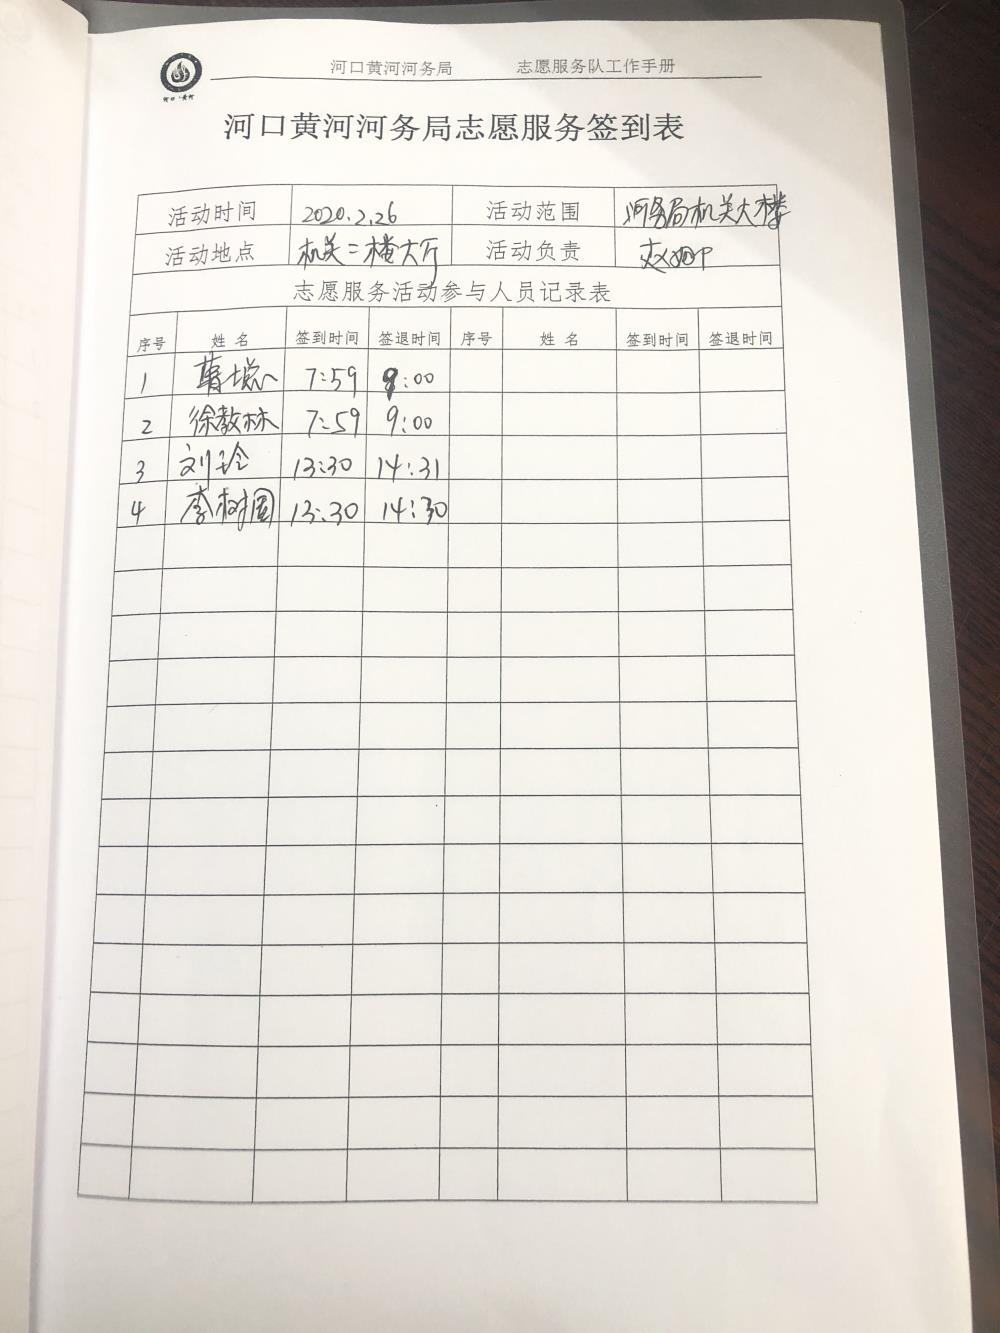 河口黄河河务局 志愿服务队工作手册
河口·黄河
河口黄河河务局志愿服务签到表
活动时间 2020.2.26 活动范围 河务局机关大楼
活动地点 机关二楼大厅 活动负责 赵
志愿服务活动参与人员记录表
序号 姓名 签到时间 签退时间 序号 姓名 签到时间 签退时间
1 7:59 9:00
2 徐教林 7:59 9:00
3 刘玲 13:30 14:31
4 李树国 13:30 14:30